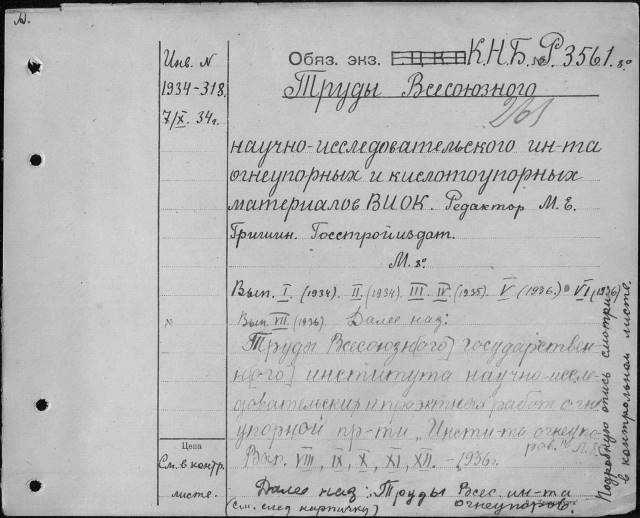 Инв. N
1934-318.
7/X. 34г.
Обяз. экз. Е.Ц.К.П К.Н.Б. № Р.3561. 8°
Труды Всесоюзного
261
научно-исследовательского ин-та
огнеупорных и кислотоупорных
материалов ВИОК. Редактор М. Е.
Гришин. Госстройиздат.
М. 8°
Вып. I. (1934). II. (1934). III. IV. (1935). V (1936.) VI (1936)
Вып. VII. (1936). Далее наз:
Труды Всесоюзн[ого] государствен-
н[ого] института научно-иссле-
довательских и проэктных работ огне-
упорной пр-ти. Инсти-та огнеупо-
ров.
Вып. VIII, IX, X, XI, XII. - 1936г.
Далее наз: Труды Всес. ин-та
огнеупоров
(см. след карточку)
Цена
См. в контр.
листе.
Подробную опись смотри
в контрольном листе.